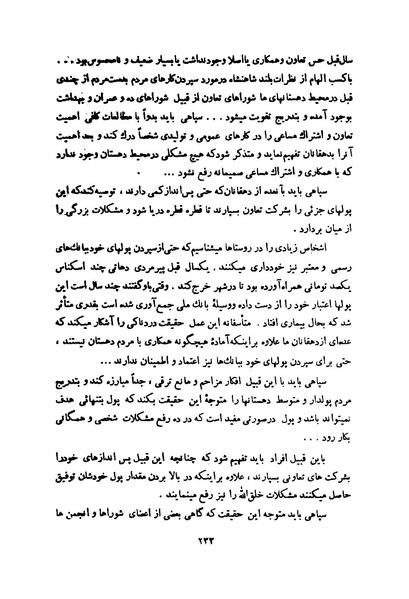 سال‌قبل حس تعاون وهمکاری یااصلا وجودنداشت یابسیار ضعیف و نامحسوس‌بود . . .
باکسب الهام از نظرات‌بلند شاهنشاه درمورد سپردن‌کارهای مردم بدست‌مردم از چندی
قبل درمحیط دهستانهای ما شوراهای تعاون از قبیل شوراهای ده و عمران و بهداشت
بوجود آمده و بتدریج تقویت میشود . . . سپاهی باید بدواً با مطالعات کافی اهمیت
تعاون و اشتراک مساعی را در کارهای عمومی و تولیدی شخصاً درک کند و بعد اهمیت
آنرا بدهقانان تفهیم‌نماید و متذکر شودکه هیچ مشکلی درمحیط دهستان وجود ندارد
که با همکاری و اشتراک مساعی صمیمانه رفع نشود . . .
سپاهی باید بآنعده از دهقانان‌که حتی پس‌اندازکمی دارند ، توصیه‌کندکه این
پولهای جزئی را بشرکت تعاون بسپارند تا قطره قطره دریا شود و مشکلات بزرگی را
از میان بردارد .
اشخاص زیادی را در روستاها میشناسیم‌که حتی‌ازسپردن پولهای خودببانک‌های
رسمی و معتبر نیز خودداری میکنند . یکسال قبل پیرمردی دهاتی چند اسکناس
یکصد تومانی همراه‌آورده بود تا درشهر خرج‌کند . وقتی‌باوگفتند چند سال است این
پولها اعتبار خود را از دست داده ووسیلهٔ بانک ملی جمع‌آوری شده است بقدری متأثر
شد که بحال بیماری افتاد . متأسفانه این عمل حقیقت دردناکی را آشکار میکند که
عده‌ای ازدهقانان ما علاوه براینکه‌آمادهٔ هیچگونه همکاری با مردم دهستان نیستند ،
حتی برای سپردن پولهای خود ببانک‌ها نیز اعتماد و اطمینان ندارند ...
سپاهی باید با این قبیل افکار مزاحم و مانع ترقی ، جداً مبارزه کند و بتدریج
مردم پولدار و متوسط دهستانها را متوجهٔ این حقیقت بکند که پول بتنهائی هدف
نمیتواند باشد و پول درصورتی مفید است که در ده رفع مشکلات شخصی و همگانی
بکار رود . . .
باین قبیل افراد باید تفهیم شود که چنانچه این قبیل پس اندازهای خودرا
بشرکت های تعاونی بسپارند ، علاوه براینکه در بالا بردن مقدار پول خودشان توفیق
حاصل میکنند مشکلات خلق‌الله را نیز رفع مینمایند .
سپاهی باید متوجه این حقیقت که گاهی بعضی از اعضای شوراها و انجمن ها
۲۳۳